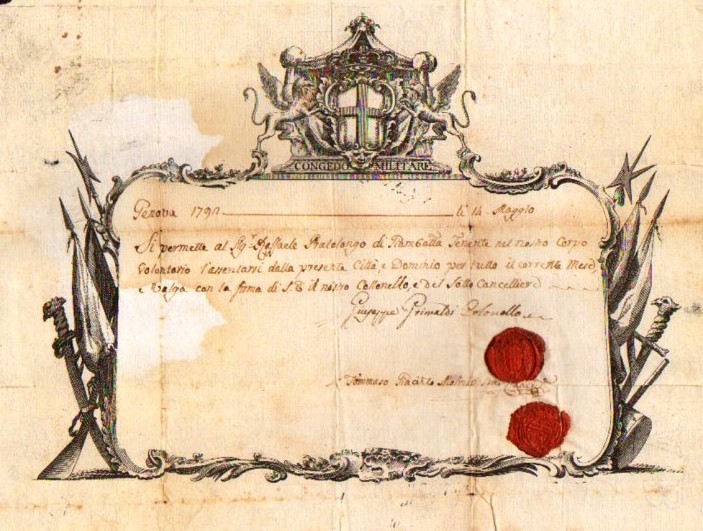 CONGEDO MILITARE
Genova 1790 li 14 Maggio
Si permette al Sig.r Raffaele Pratolongo di Giambatta Tenente nel nostro Corpo
Volontario l'assentarsi dalla presente Città, e Dominio per tutto il corrente Mese
e Valga con la firma di S.E. il nostro Collonello, e del Sotto Cancelliere
Giuseppe Grimaldi Colonello
Tommaso